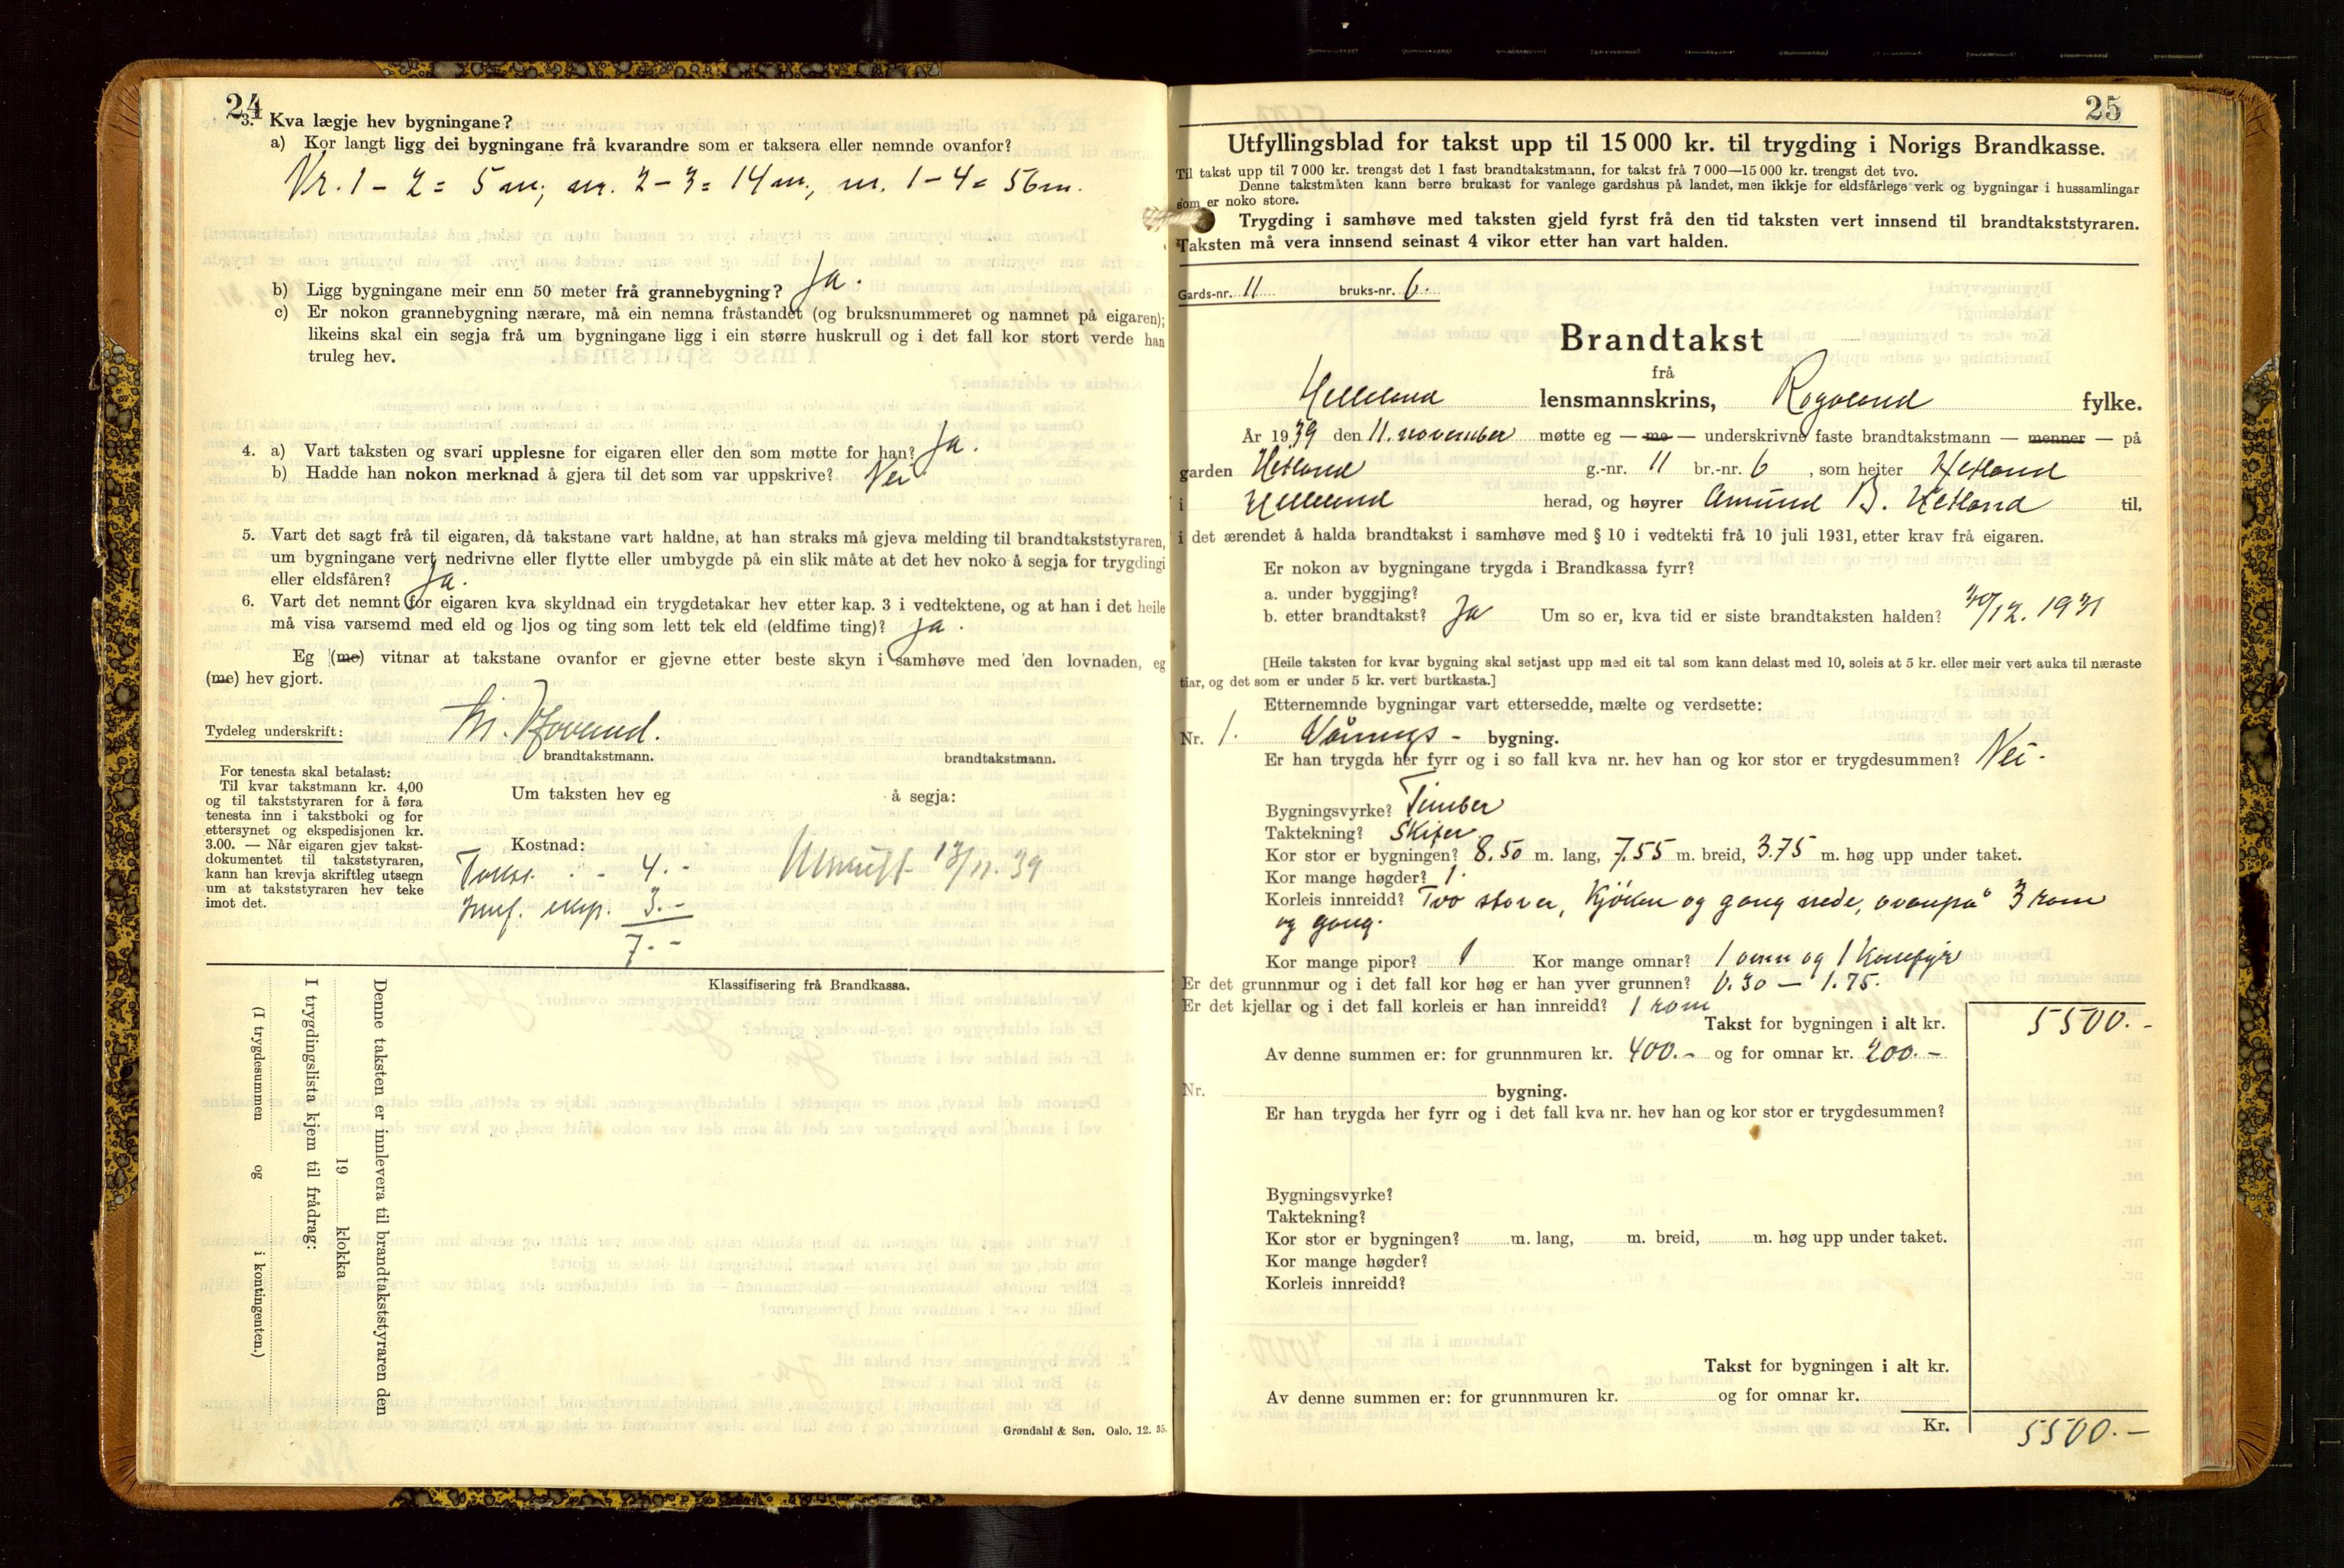 24
3. Kva lægje hev bygningane?
a) Kor langt ligg dei bygningane frå kvarandre som er taksera eller nemnde ovanfor?
Nr. 1 – 2 = 5 m; nr. 2 – 3 = 14 m, nr. 1 – 4 = 56 m.
b) Ligg bygningane meir enn 50 meter frå grannebygning? Ja.
c) Er nokon grannebygning nærare, må ein nemna fråstandet (og bruksnummeret og namnet på eigaren);
likeins skal ein segja frå um bygningane ligg i ein større huskrull og i det fall kor stort verde han
truleg hev.
4. a) Vart taksten og svari upplesne for eigaren eller den som møtte for han? Ja.
b) Hadde han nokon merknad å gjera til det som var uppskrive? Nei
5. Vart det sagt frå til eigaren, då takstane vart haldne, at han straks må gjeva melding til brandtakststyraren,
um bygningane vert nedrivne eller flytte eller umbygde på ein slik måte at det hev noko å segja for trygdingi
eller eldsfåren? Ja.
6. Vart det nemnt for eigaren kva skyldnad ein trygdetakar hev etter kap. 3 i vedtektene, og at han i det heile
må visa varsemd med eld og ljos og ting som lett tek eld (eldfime ting)? Ja.
Eg (me) vitnar at takstane ovanfor er gjevne etter beste skyn i samhøve med den lovnaden, eg
(me) hev gjort.
Tydeleg underskrift:
brandtakstmann. brandtakstmann.
For tenesta skal betalast:
Til kvar takstmann kr. 4,00
og til takststyraren for å føra
tenesta inn i takstboki og for
ettersynet og ekspedisjonen kr.
3.00. — Når eigaren gjev takst-
dokumentet til takststyraren,
kann han krevja skriftleg utsegn
um at takststyraren hev teke
imot det.
Um taksten hev eg å segja:
Kostnad:
Takst. - - 4. -
Innf. eksp. 3. -
7. -
Utskrift 13/11. 39
Klassifisering frå Brandkassa.
Denne taksten er innlevera til brandtakststyraren den
19 klokka
I trygdingslista kjem til frådrag:
(I trygdesummen og i kontingenten.)
Grøndahl & Søn. Oslo. 12. 35.
25
Utfyllingsblad for takst upp til 15 000 kr. til trygding i Norigs Brandkasse.
Til takst upp til 7 000 kr. trengst det 1 fast brandtakstmann, for takst frå 7 000—15 000 kr. trengst det tvo.
Denne takstmåten kann berre brukast for vanlege gardshus på landet, men ikkje for eldsfårlege verk og bygningar i hussamlingar
som er noko store.
Trygding i samhøve med taksten gjeld fyrst frå den tid taksten vert innsend til brandtakststyraren.
Taksten må vera innsend seinast 4 vikor etter han vart halden.
Gards-nr. 11 bruks-nr. 6.
Brandtakst
frå
Helleland lensmannskrins, Rogaland fylke.
År 1939 den 11. november møtte eg — me — underskrivne faste brandtakstmann — menner — på
garden Hetland g.-nr. 11 br.-nr. 6 , som heiter Hetland
i Helleland herad, og høyrer Amund B. Hetland til,
i det ærendet å halda brandtakst i samhøve med § 10 i vedtekti frå 10 juli 1931, etter krav frå eigaren.
Er nokon av bygningane trygda i Brandkassa fyrr?
a. under byggjing?
b. etter brandtakst? Ja Um so er, kva tid er siste brandtaksten halden? 30/12. 1931
[Heile taksten for kvar bygning skal setjast upp med eit tal som kann delast med 10, soleis at 5 kr. eller meir vert auka til næraste
tiar, og det som er under 5 kr. vert burtkasta.]
Etternemnde bygningar vart ettersedde, mælte og verdsette:
Nr. 1. Vånings - bygning.
Er han trygda her fyrr og i so fall kva nr. hev han og kor stor er trygdesummen? Nei -
Bygningsvyrke? Timber
Taktekning? Skifer
Kor stor er bygningen? 8.50 m. lang, 7.55 m. breid, 3.75 m. høg upp under taket.
Kor mange høgder? 1.
Korleis innreidd? Tvo stover, kjöken og gang nede, ovanpå 3 rom
og gang.
Kor mange pipor? 1 Kor mange omnar? 1 omn og 1 komfyr
Er det grunnmur og i det fall kor høg er han yver grunnen? 0.30 — 1.75.
Er det kjellar og i det fall korleis er han innreidd? 1 rom
Takst for bygningen i alt kr. 5500. -
Av denne summen er: for grunnmuren kr. 400. - og for omnar kr. 200. -
Nr. bygning.
Er han trygda her fyrr og i det fall kva nr. hev han og kor stor er trygdesummen?
Bygningsvyrke?
Taktekning?
Kor stor er bygningen? m. lang, m. breid, m. høg upp under taket.
Kor mange høgder?
Korleis innreidd?
Takst for bygningen i alt kr.
Av denne summen er: for grunnmuren kr. og for omnar kr.
Kr. 5500. -